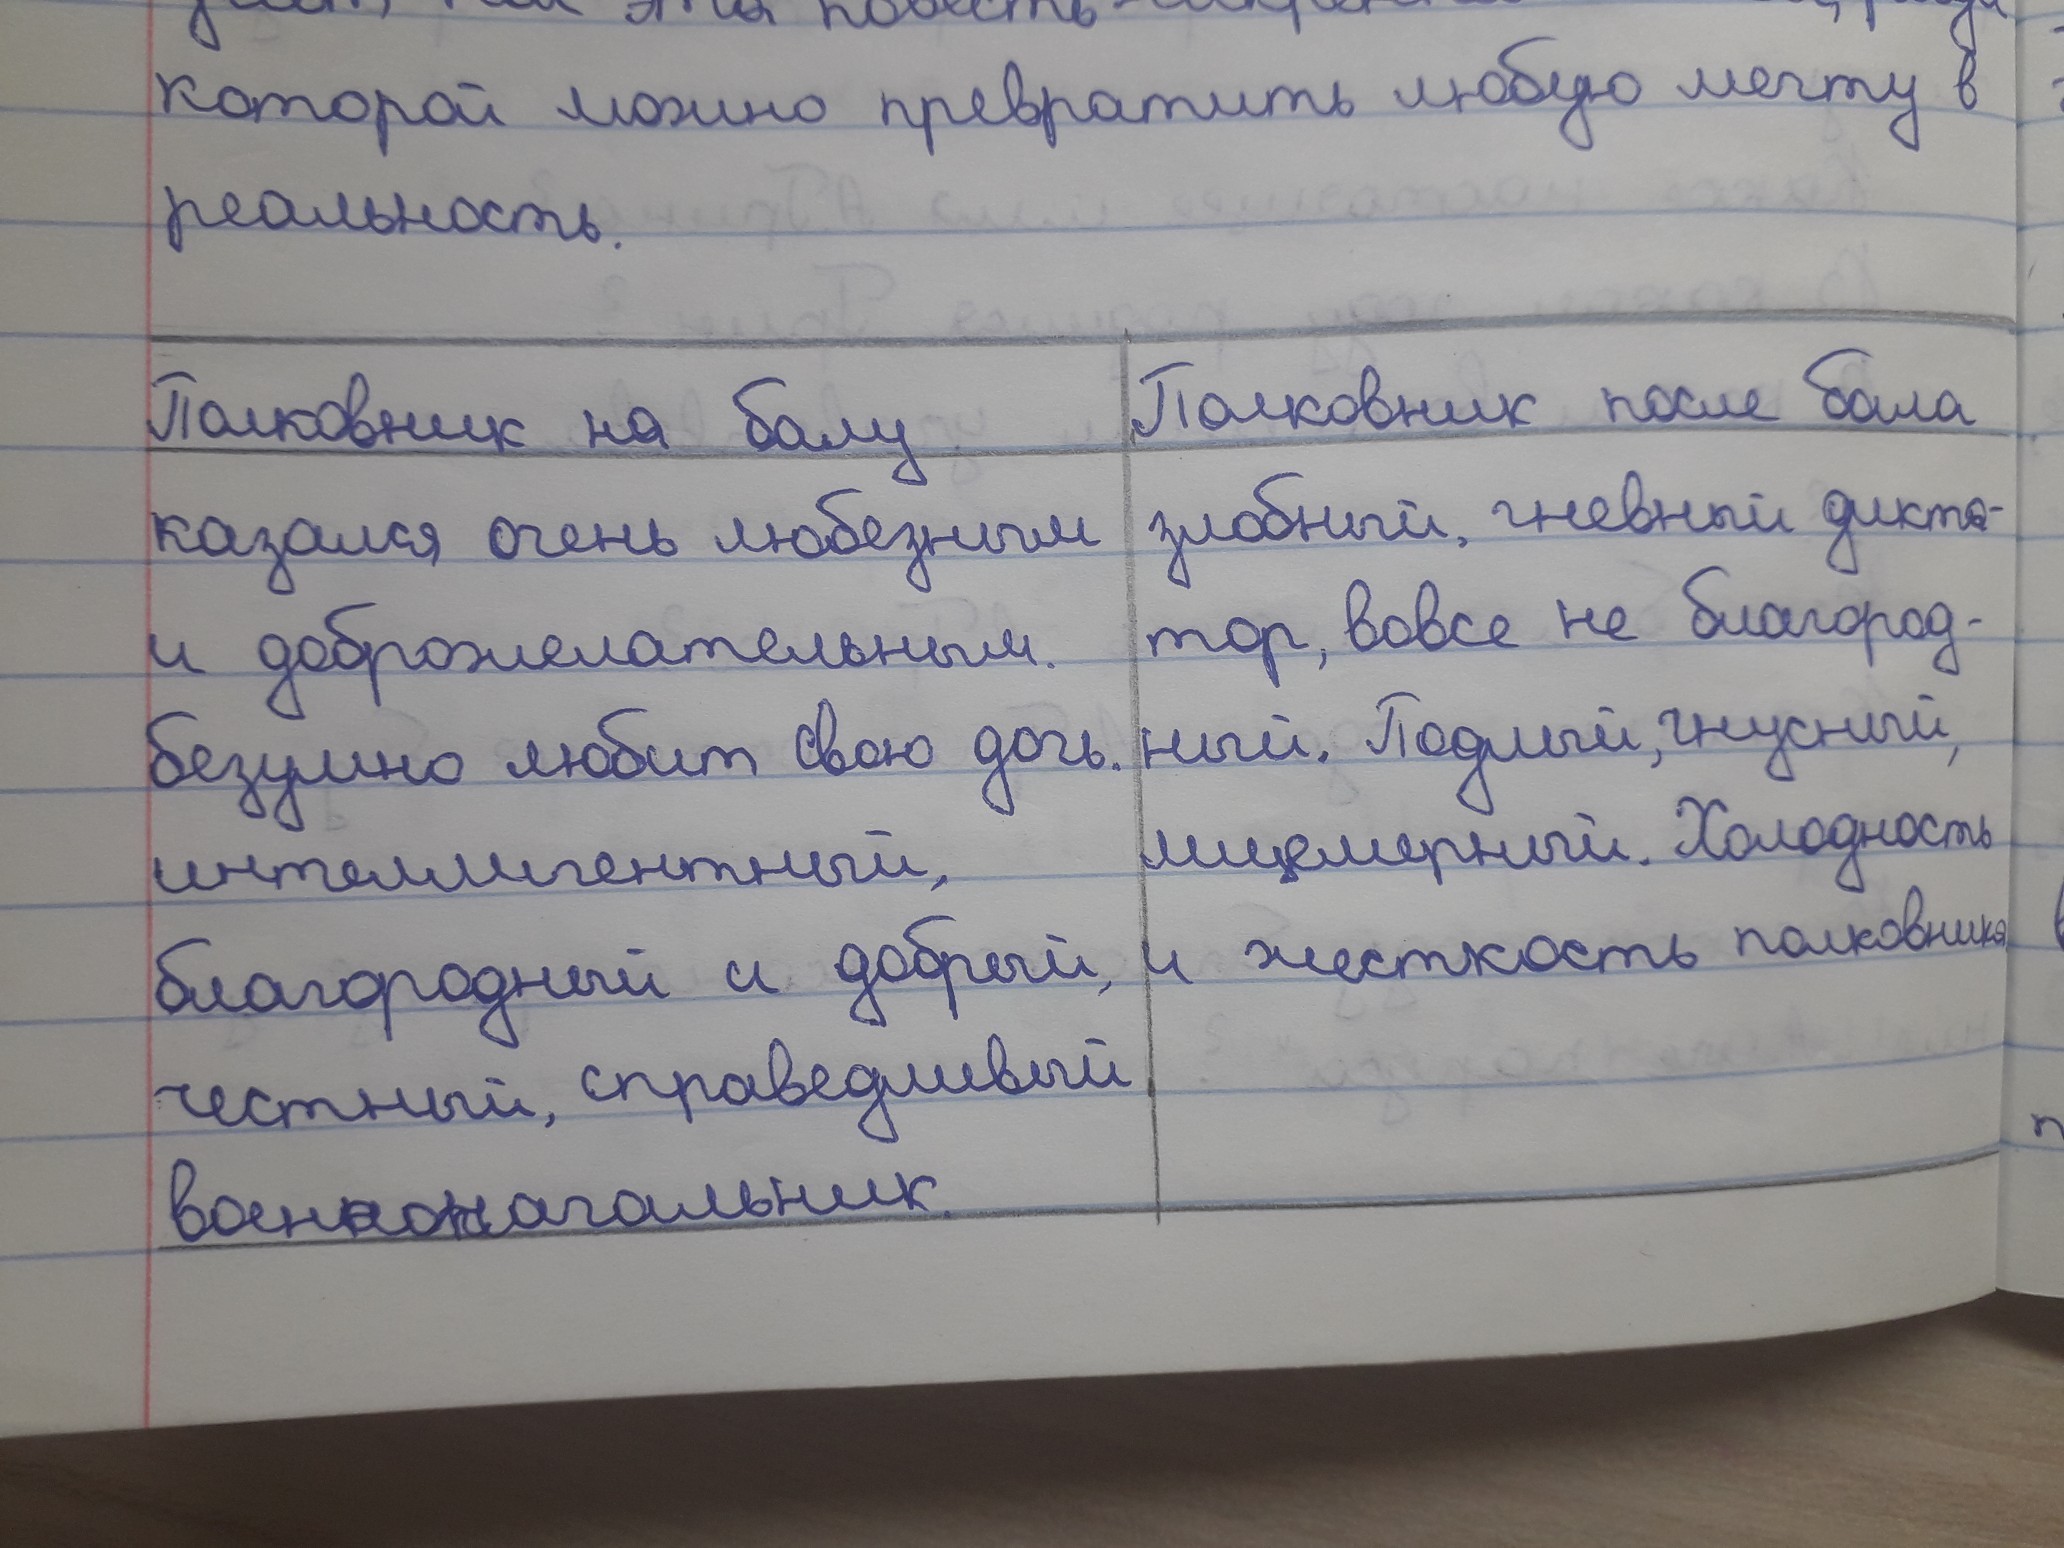 эта повесть
которой можно превратить любую мечту в
реальность.
Полковник на балу
казался очень любезным
и доброжелательным.
безумно любит свою дочь.
интеллигентный,
благородный и добрый,
честный, справедливый
военноначальник.
Полковник после бала
злобный, гневный дикта-
тор, вовсе не благород-
ный. Подлый, гнусный,
лицемерный. Холодность
и жесткость полковника